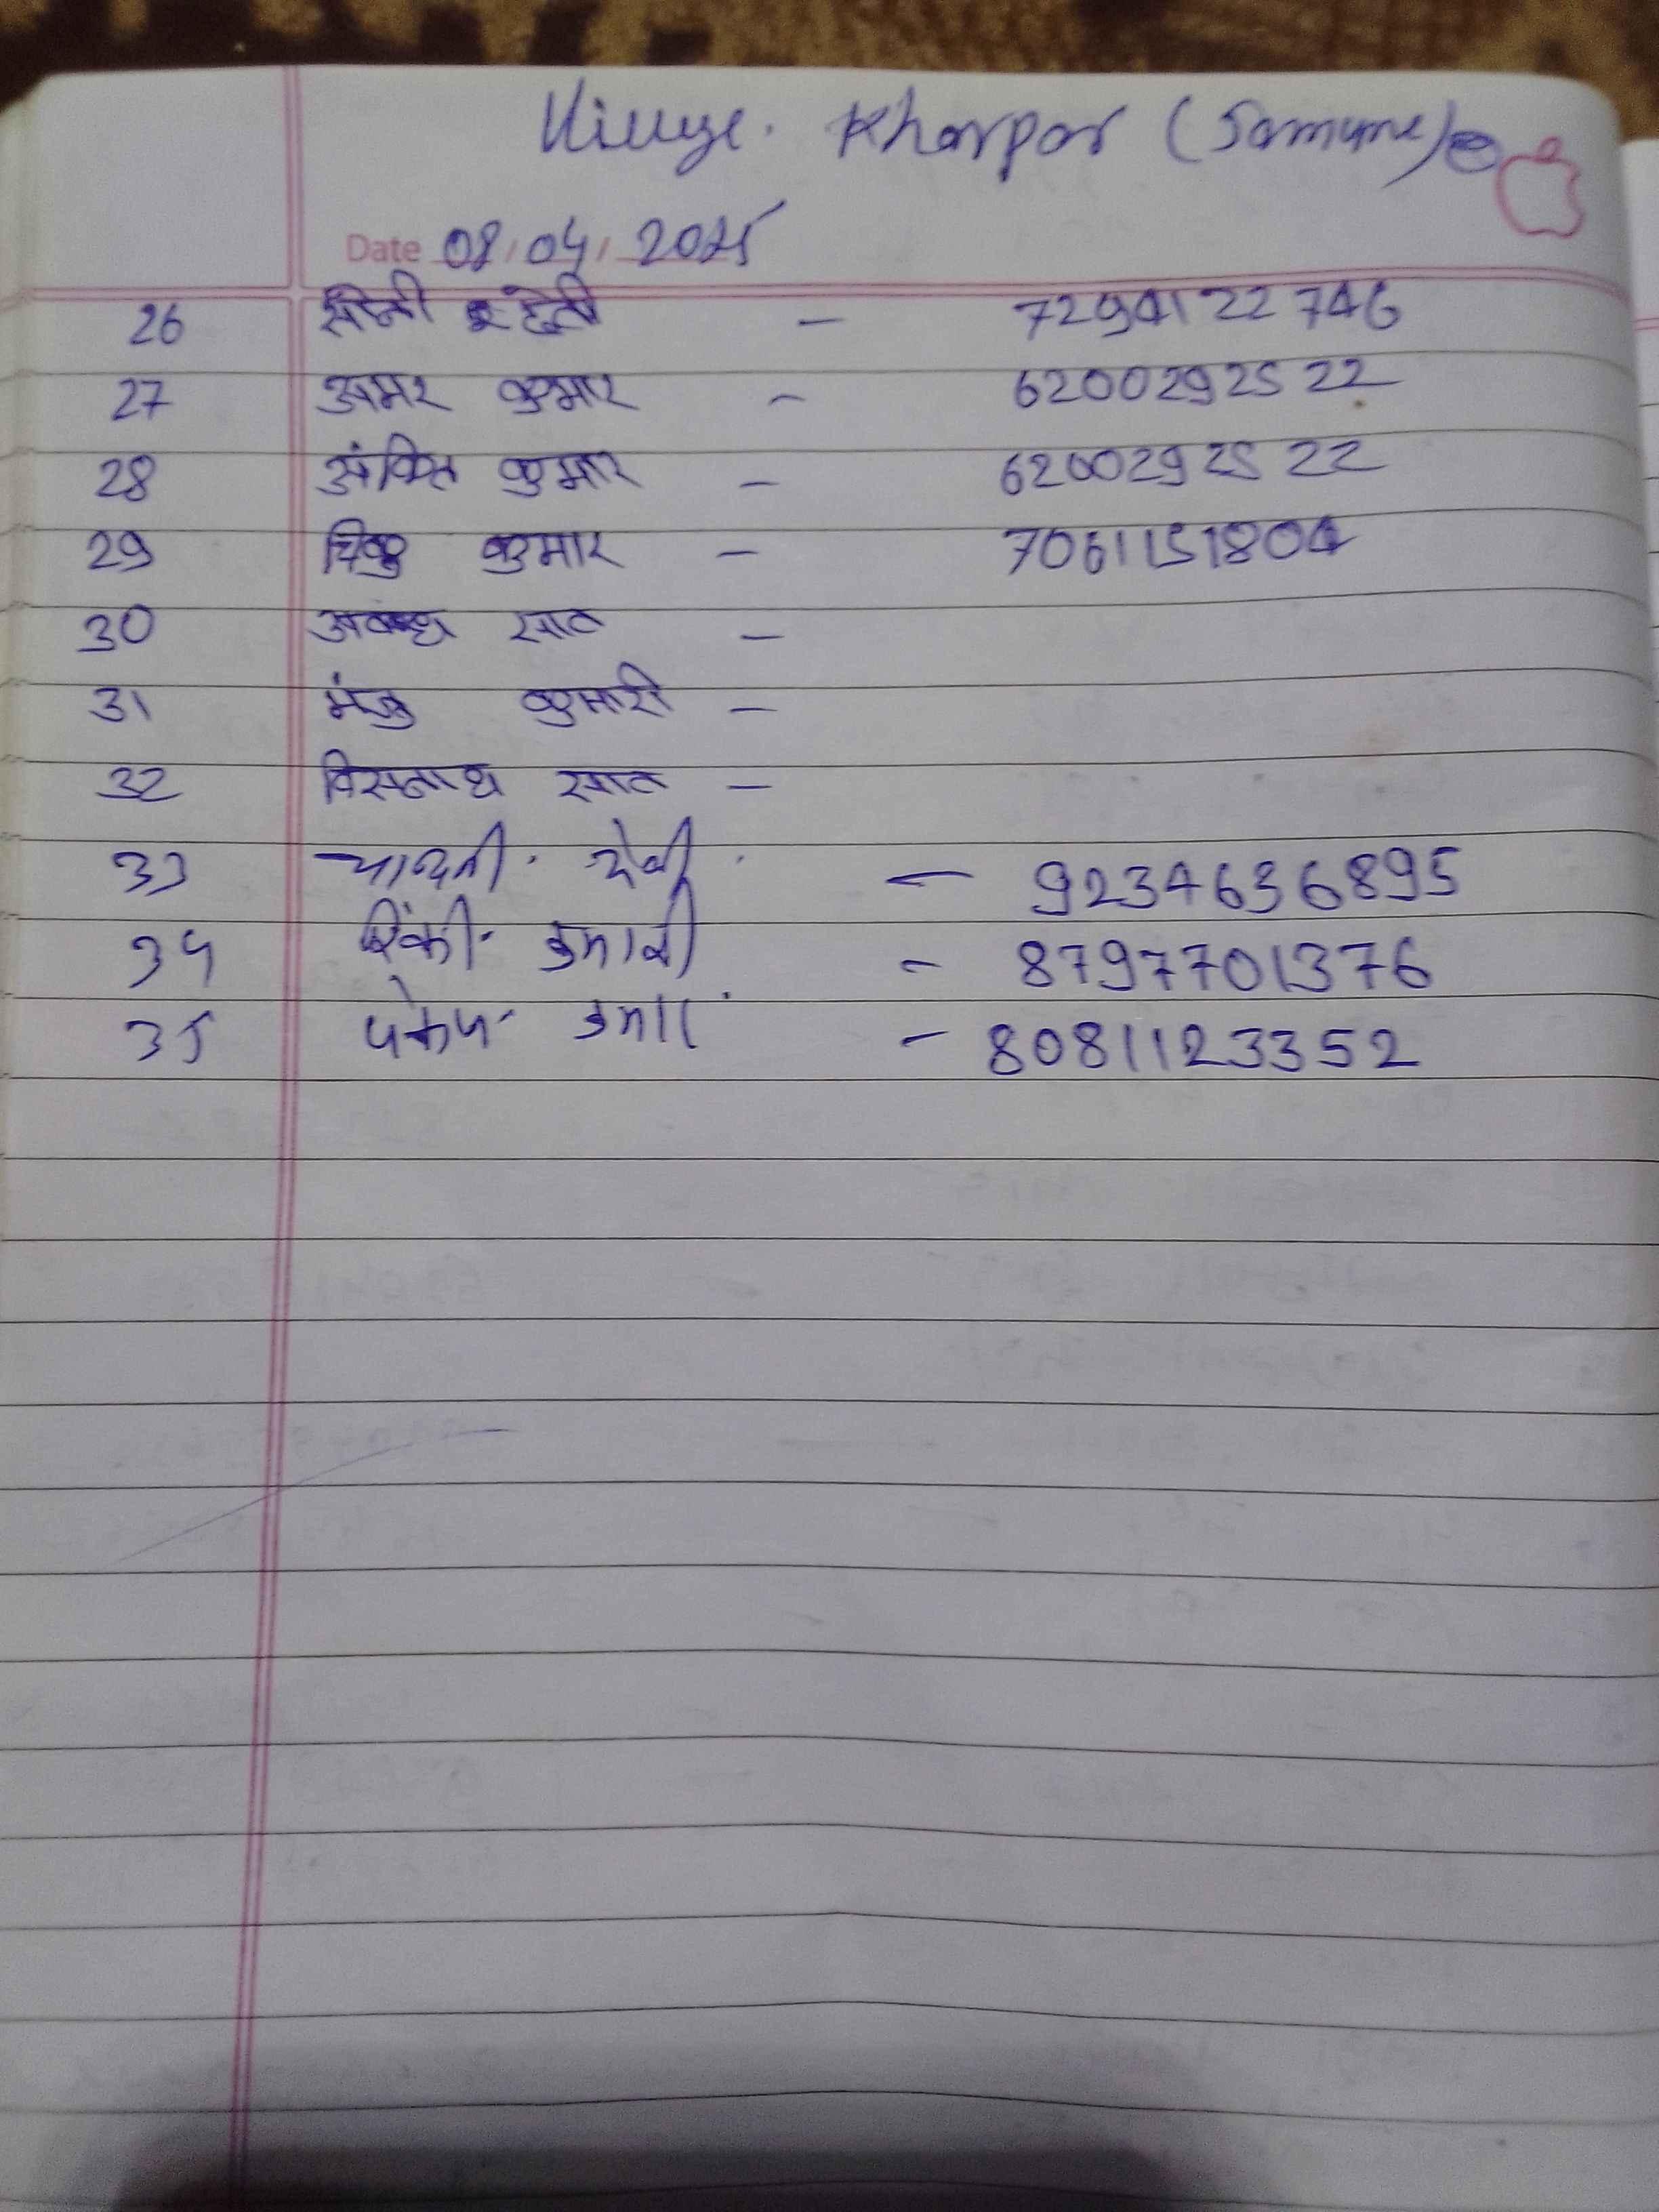 Village. Kharpar
Date 08/04/2025
26 - 7294122746
27 अमर कुमार - 6200292522
28 अंकित कुमार - 6200292522
29 चिकु कुमार - 7061151804
30 साव -
31 मंजु कुमारी -
32 विस्नाथ साव -
33 देवी - 9234636895
34 रिंकी कुमारी - 8797701376
35 कुमार - 8081123352